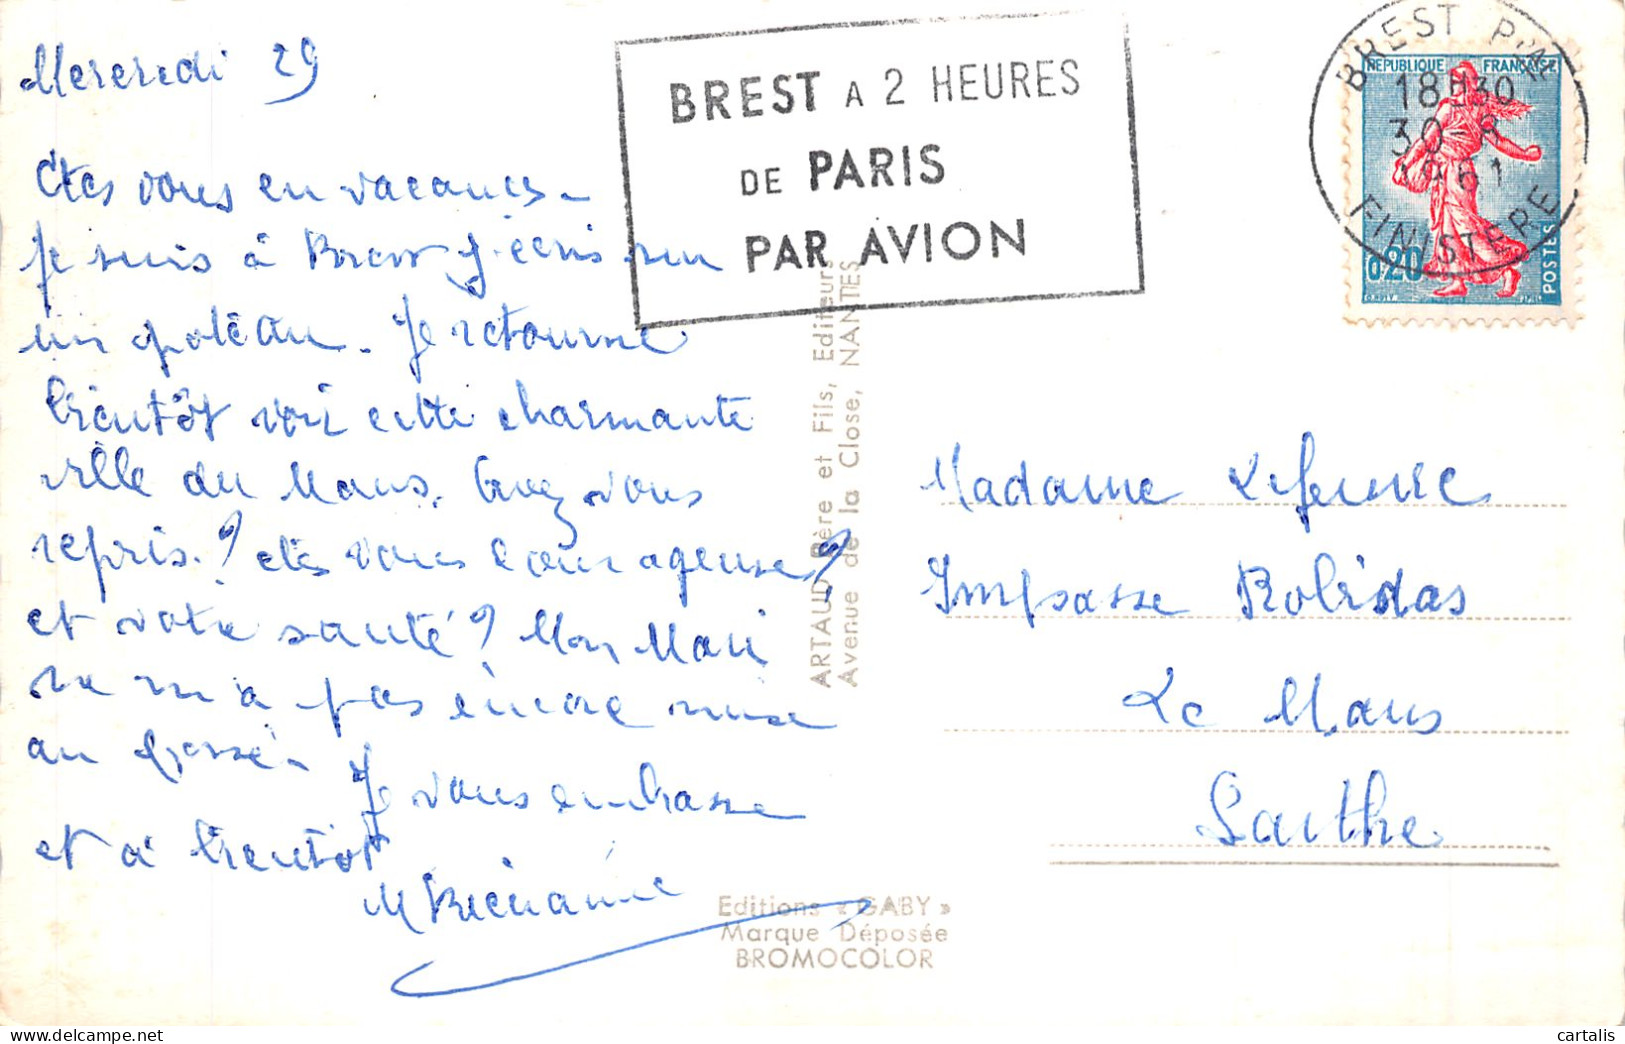 Mercredi 29
Etes vous en vacances -
Je suis à Brest j'écris sur
un poteau. Je retourne
bientôt voir cette charmante
ville du Mans. Avez vous
repris ? êtes vous courageuse ?
et votre santé ? Mon Mari
ne m'a pas encore mise
au
Je vous embrasse
et à bientôt
BREST A 2 HEURES
DE PARIS
PAR AVION
BREST Pal
18H30
30-8
1961
FINISTERE
REPUBLIQUE FRANÇAISE
0,20
POSTES
ARTAUD Père et Fils, Editeurs
Avenue de la Close, NANTES
Madame
Impasse Robidas
Le Mans
Sarthe
Editions « GABY »
Marque Déposée
BROMOCOLOR
cartalis